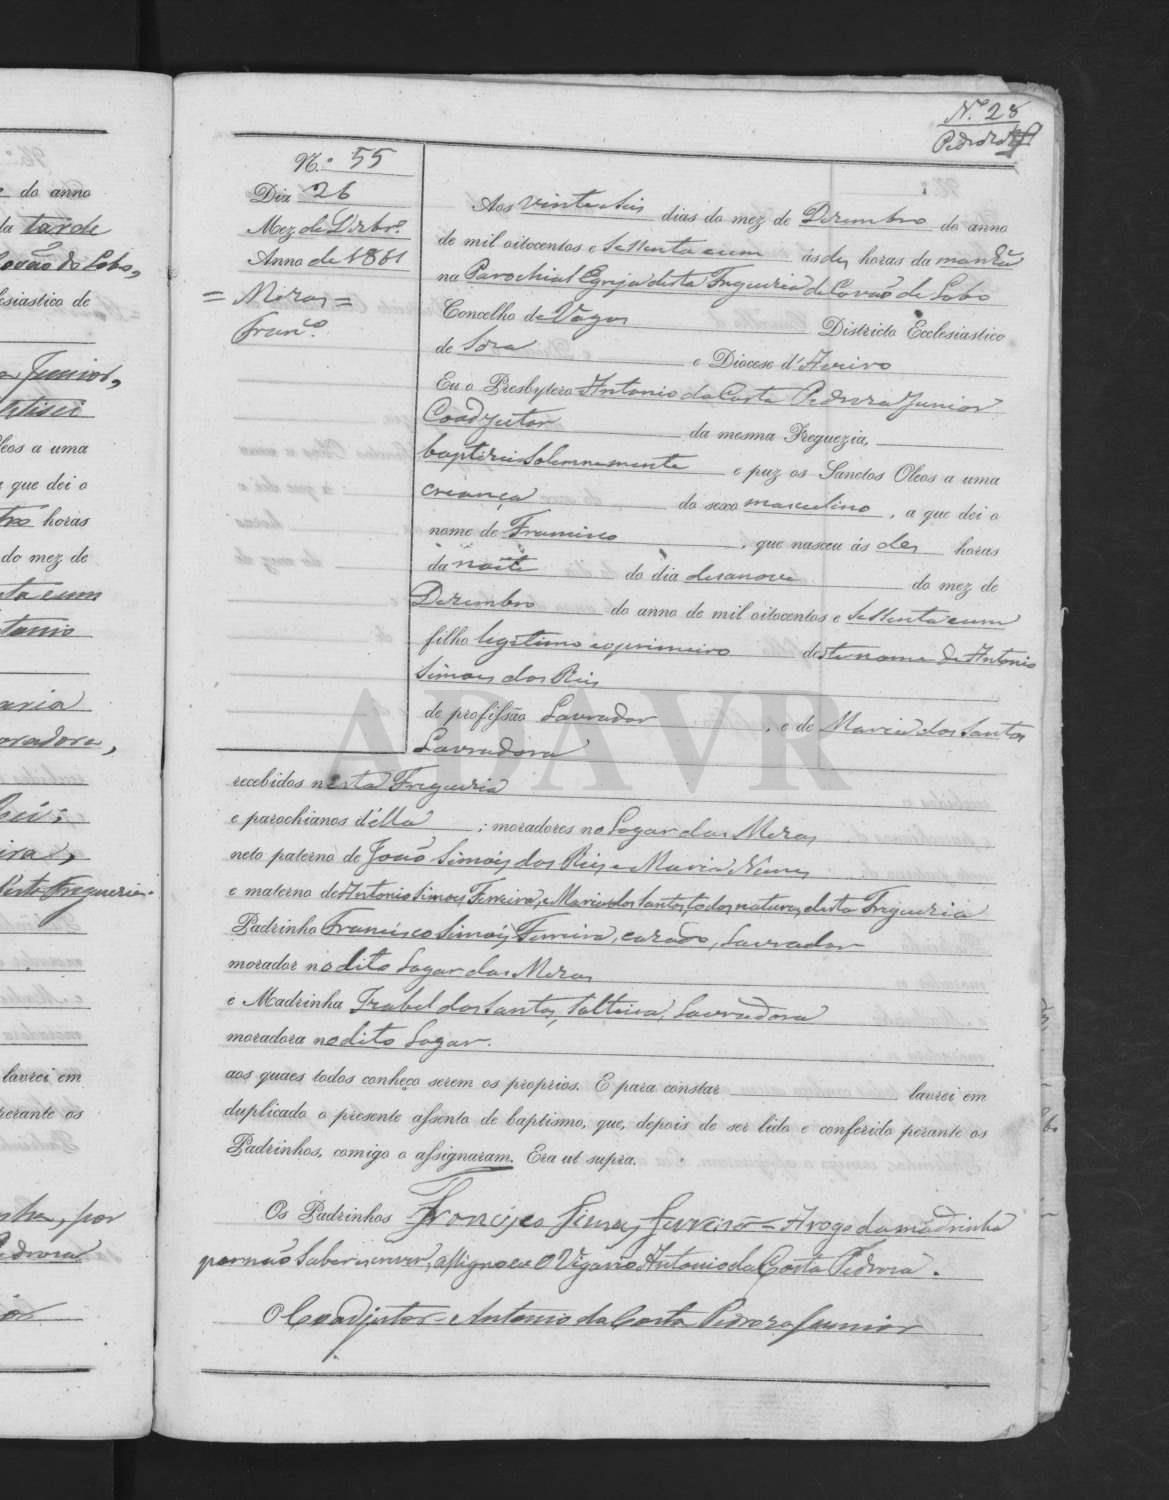 N.º 28
Pedroza Jor
N.º 55
Dia 26
Mez de Dezbr.º
Anno de 1861
= Mezas =
Fran.co
Aos vinte e seis dias do mez de Dezembro do anno
de mil oitocentos e sessenta e um ás dez horas da manhã
na Parochial Egreja desta Freguezia de Covão do Lobo
Concelho de Vagos Districto Ecclesiastico
de Soza e Diocese d'Aveiro
Eu o Presbytero Antonio da Costa Pedroza Junior
Coadjutor da mesma Freguezia,
baptizei Solemnemente e puz os Sanctos Oleos a uma
criança do sexo masculino, a que dei o
nome de Francisco, que nasceu ás dez horas
da noite do dia desanove do mez de
Dezembro do anno de mil oitocentos e sessenta e um
filho legitimo e o primeiro deste nome de Antonio
Simoes dos Reis
de profissão Lavrador, e de Maria dos Santos
Lavradora
recebidos nesta Freguezia
e parochianos d'élla; moradores no Logar das Mezas
neto paterno de João Simoes dos Reis e Maria Nunes
e materno de Antonio Simoes Ferreira, e Maria dos Santos, todos naturaes desta Freguezia
Padrinho Francisco Simoes Ferreira, cazado, Lavrador
morador no dito Logar das Mezas
e Madrinha Izabel dos Santos, Solteira, Lavradora
moradora no dito Logar.
aos quaes todos conheço serem os proprios. E para constar lavrei em
duplicado o presente assento de baptismo, que, depois de ser lido e conferido perante os
Padrinhos, comigo o assignaram. Era ut supra.
Os Padrinhos Francisco Simoes Ferreira = A rogo da madrinha
por não Saber escrever, assigno eu O Vigario Antonio da Costa Pedroza.
O Coadjutor = Antonio da Costa Pedroza Junior
do anno
da tarde
Covão do Lobo,
lesiastico de
Junior,
baptisei
leos a uma
que dei o
horas
do mez de
ta e um
tonio
aria
oradora,
desta Freguezia.
lavrei em
perante os
por
Pedroza
ADAVR